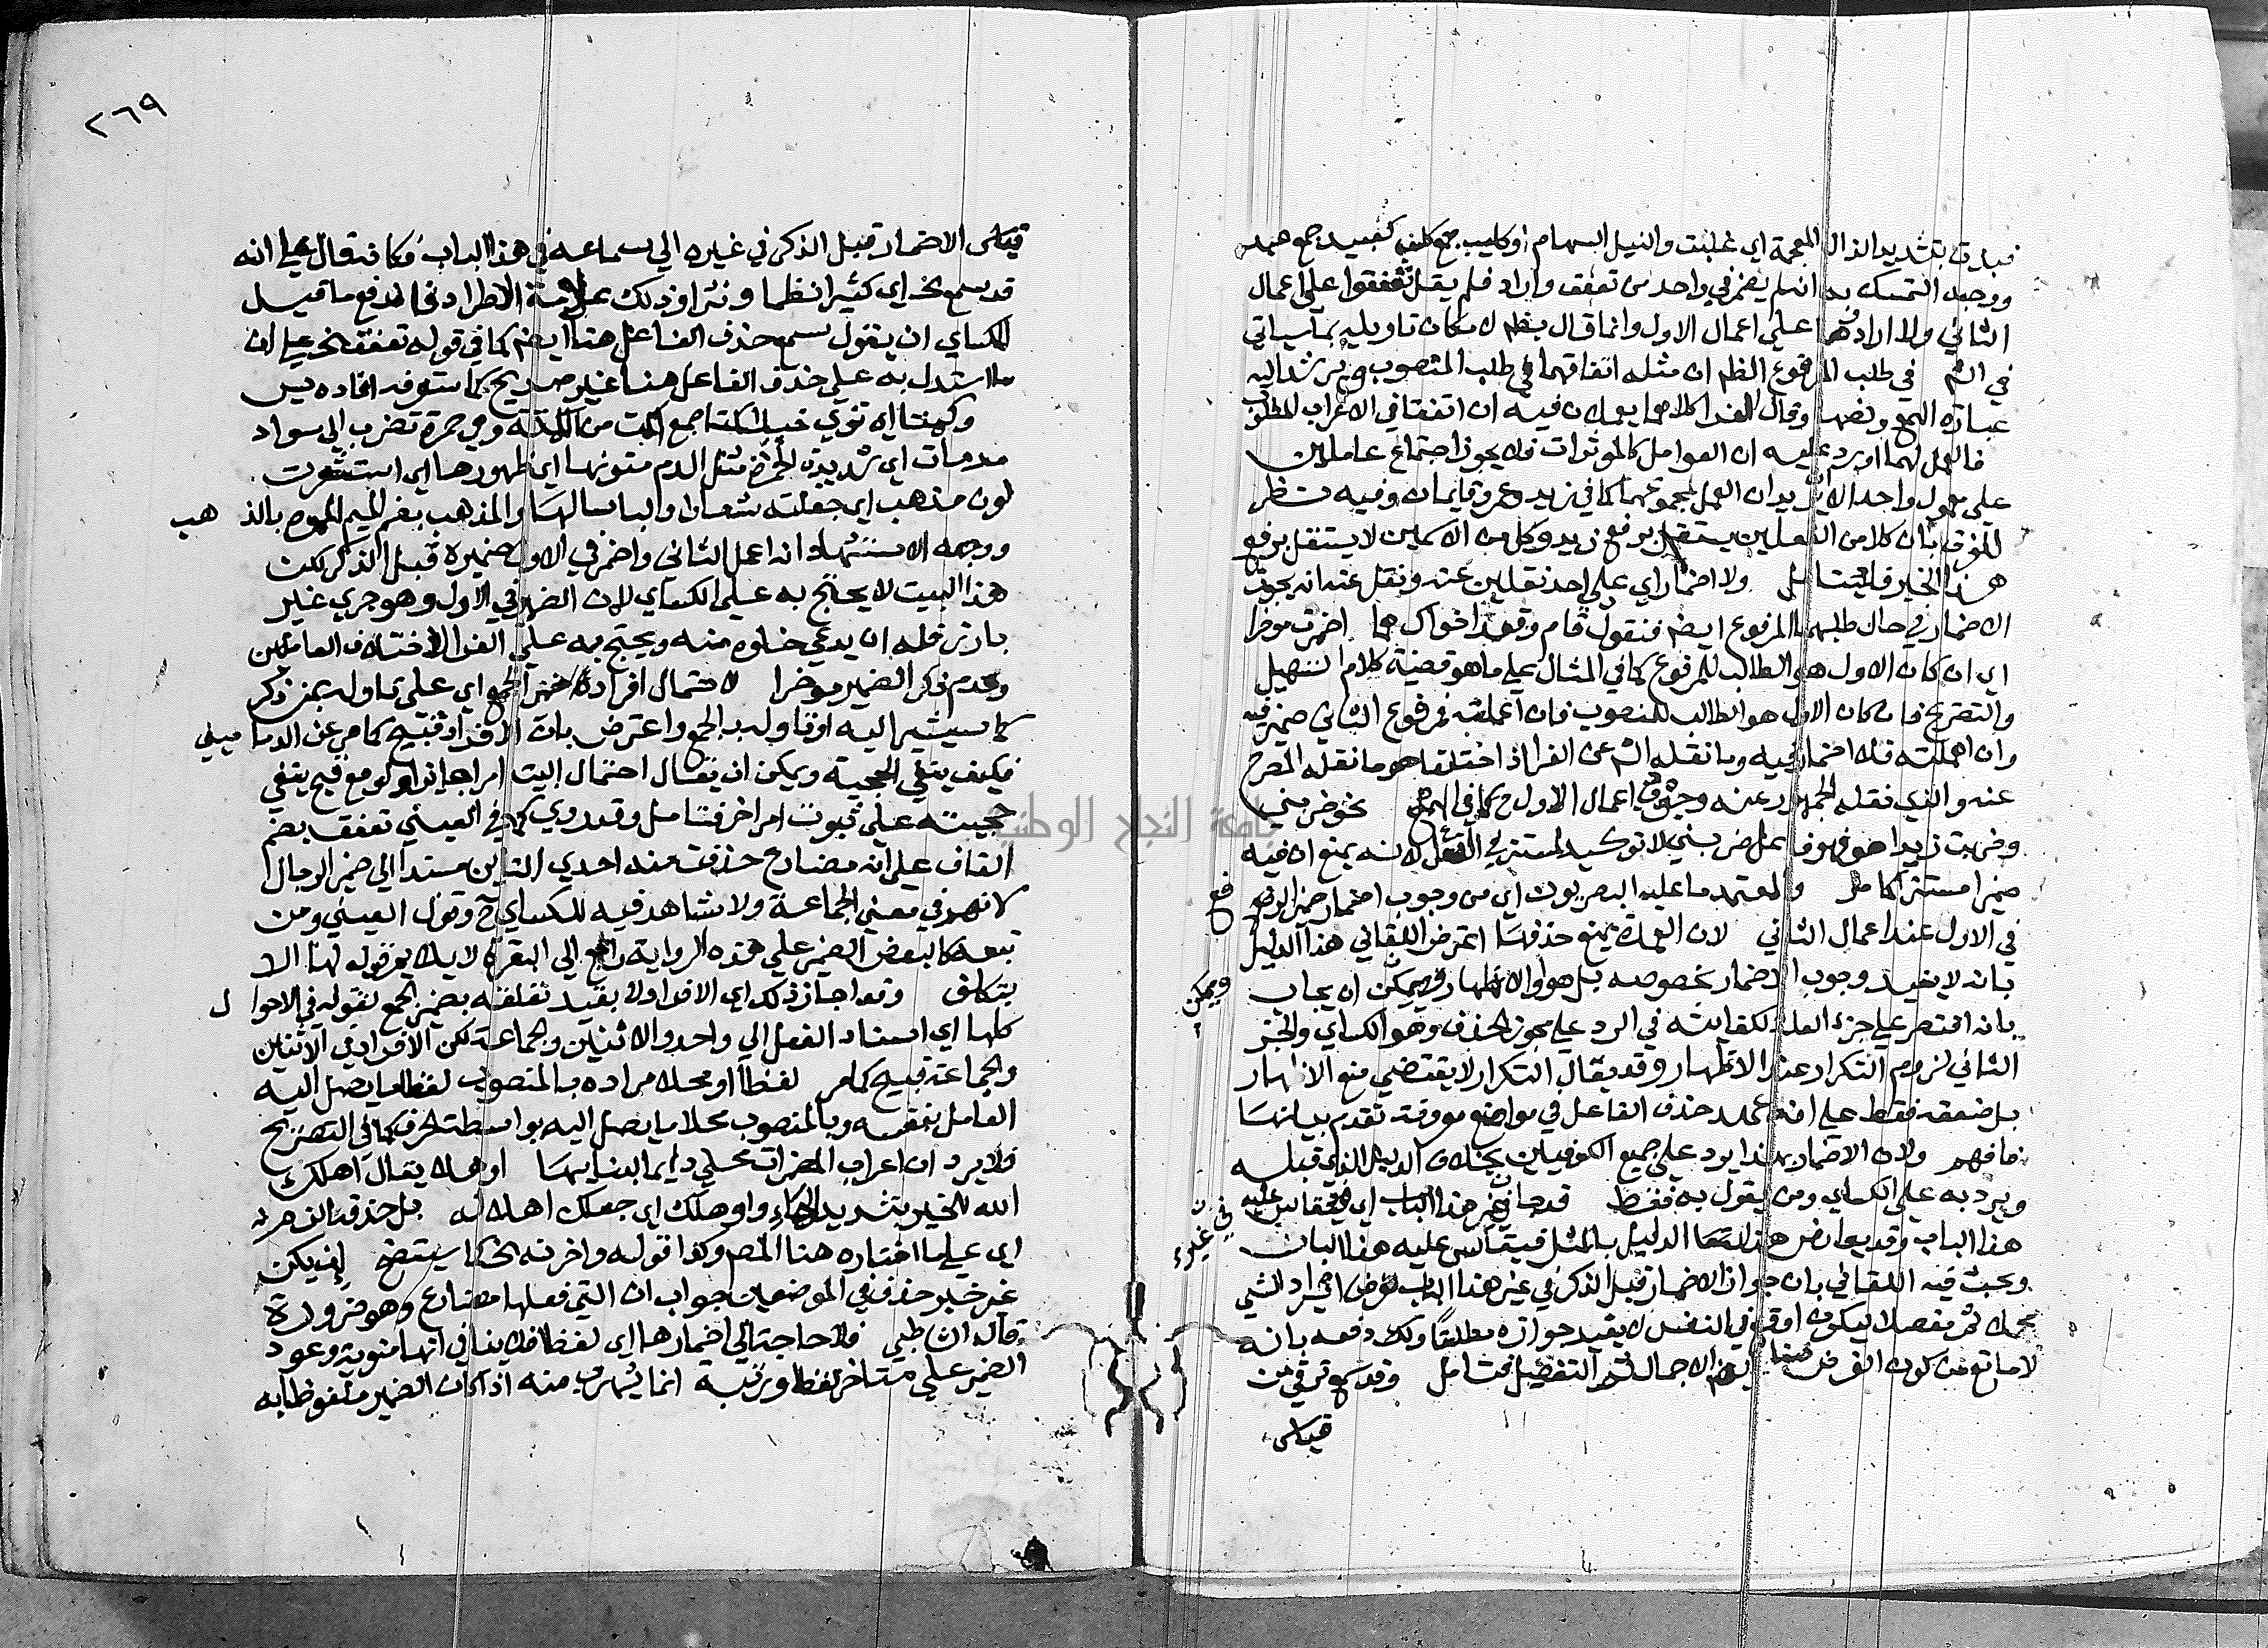 فبذت بتشديد الذال المعجمة اي غلبت والنبل السهام او كليب جمع كلب كعبيد جمع عبد
ووجه التمسك به انه لم يضمر في واحد من تعفق واراد فلم يقل تعفقوا على اعمال
الثاني ولا ارادوا على اعمال الاول وانما قال لامكان تاويله بما سياتي
في الش في طلب المرفوع الظم ان مثله اتفاقهما في طلب المنصوب ويرشد اليه
عبارة الهمع ونصها وقال الفرا كلاهما يعملان فيه ان اتفقا في الاعراب المطلوب
فالعمل لهما اورد عليه ان العوامل كالموثرات فلا يجوز اجتماع عاملين
على معمول واحد الا ان يريد ان العمل لمجموعهما كما في زيد وعمرو قايمان وفيه نظر
للفرق بان كلا من الفعلين يستقل برفع زيد وكل من الاسمين لا يستقل برفع
هذا الخبر فليتامل ولا اضمار اي على احد نقلين عنه ونقل عنه انه يجوز
الاضمار في حال طلبهما المرفوع ايضا فتقول قام وقعد اخواك هما اضمرته موخرا
اي ان كان الاول هو الطالب للمرفوع كما في المثال على ما هو قضية كلام التسهيل
والتصريح فان كان الاول هو الطالب للمنصوب فان اعملته فمرفوع الثاني ضمير فيه
وان اهملته فلا اضمار فيه وما نقله الش عن الفرا اذا اختلفا هو ما نقله المصرح
عنه والذي نقله الجمهور عنه وجوب اعمال الاول ح كما في الهمع نحو ضربني
وضربت زيدا هو فهو فاعل ضربني لا توكيد لمستتر في الفعل لانه يمنع ان فيه
ضميرا مستترا كامل والمعتمد ما عليه البصريون اي من وجوب اضمار ضمير الرفع
في الاول عند اعمال الثاني لان العمدة يمنع حذفها اعترض اللقاني هذا الدليل
بانه لا يفيد وجوب الاضمار بخصوصه بل هو او الاظهار ويمكن ان يجاب
بانه اقتصر على جزء العلة لكفايته في الرد على مجوز الحذف وهو الكساي والجزء
الثاني لزوم التكرار عند الاظهار وقد يقال التكرار لا يقتضي منع الاظهار
بل ضعفه فقط على انه عهد حذف الفاعل في مواضع معروفة تقدم بيانها
فافهم ولان الاضمار هذا يرد على جميع الكوفيين بخلاف الدليل الذي قبله
ويرد به على الكساي ومن يقول به فقط قد جا في غير هذا الباب اي فيقاس عليه
هذا الباب وقد يعارض هذا الدليل بالمثل فيقاس عليه هذا الباب
وبحث فيه اللقاني بان جواز الاضمار قبل الذكر في غير هذا الباب لغرض ايراد الشي
مجملا ثم مفصلا ليكون اوقع في النفس لا يفيد جوازه مطلقا ولك دفعه بانه
لا مانع من كون الغرض هنا ايضا الاجمال ثم التفصيل فتامل وقد سمع ترق من
قياس
فع
ويمكن
في غيره
٢٦٩
قياس الاضمار قبل الذكر في غيره الى سماعه في هذا الباب فكانه قال على انه
قد سمع نحو اي كثيرا نظما ونثرا وذلك علامة الاطراد فاندفع ما قيل
للكساي ان يقول سمع حذف الفاعل هنا ايضا كما في قوله تعفق نحو على ان
ما استدل به على حذف الفاعل هنا غير صريح كما ستعرفه افاده يس
وكمتا اي ترى خيلا كمتا جمع اكمت من الكمتة وهي حمرة تضرب الى سواد
مدماة اي شديدة الحمرة مثل الدم متونها اي ظهورها اي استشعرت
لون مذهب اي جعلته شعارا ولباسا لها والمذهب بضم الميم المموه بالذهب
ووجه الاستشهاد انه اعمل الثاني واضمر في الاول ضميره قبل الذكر لكن
هذا البيت لا يحتج به على الكساي لان الضمير في الاول وهو جري غير
بارز فله ان يدعي خلوه منه ويحتج به على الفرا لاختلاف العاملين
وعدم ذكر الضمير موخرا لاحتمال افراده ضمير الجمع اي على تاوله بمن ذكر
كما سيشير اليه او تاوله بالجمع واعترض بان الافراد قبيح كما مر عن الدماميني
فكيف ينفي الحجية ويمكن ان يقال احتمال البيت امرا جايزا ولو مع قبح ينفي
حجيته على ثبوت امر اخر فتامل وقد روي كما في العيني تعفق بضم
القاف على انه مضارع حذفت منه احدى التاين مسندا الى ضمير الرجال
لانهم في معنى الجماعة ولا شاهد فيه للكساي ح وقول العيني ومن
تبعه كالبعض الضمير على هذه الرواية راجع الى البقرة لا يلايم قوله لها الا
بتكلف وقد اجاز ذلك اي الافراد لا بقيد تعلقه بضمير الجمع لقوله في الاحوال
كلها اي اسناد الفعل الى واحد والاثنين والجماعة لكن الافراد في الاثنين
والجماعة قبيح كما مر لفظا او محلا مراده بالمنصوب لفظا ما يصل اليه
العامل بنفسه وبالمنصوب محلا ما يصل اليه بواسطة الحرف كما في التصريح
فلا يرد ان اعراب المضمرات محلي دايما لبنايها اوهلا يقال اهلك
الله للخير بتشديد الهاء واوهلك اي جعلك اهلا له بل حذفه الزم
اي على ما اختاره هنا المص وكذا قوله واخرنه نحو كما سيتضح ان يكن
غير خبر حذف في الموضعين جواب ان التي فعلها مضارع وهو ضرورة
قاله الشاطبي فلا حاجة الى اضمارها اي لفظا فلا ينافي انها منوية وعود
الضمير على متاخر لفظا ورتبة انما يهرب منه اذا كان الضمير ملفوظا به
جامعة النجاح الوطنية